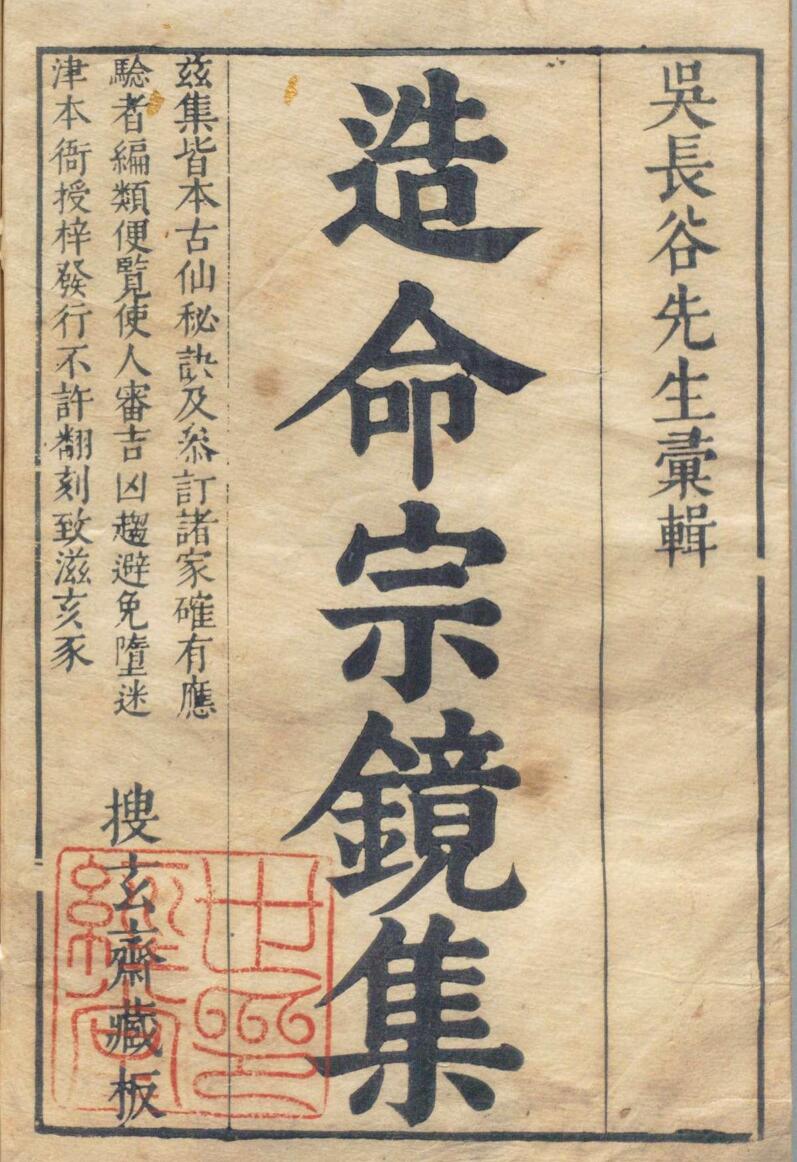 吳長谷先生彙輯
造命宗鏡集
茲集皆本古仙秘訣及叅訂諸家確有應
驗者編類便覧使人審吉凶趨避免墮迷
津本衙授梓發行不許翻刻致滋亥豕
搜玄齋藏板